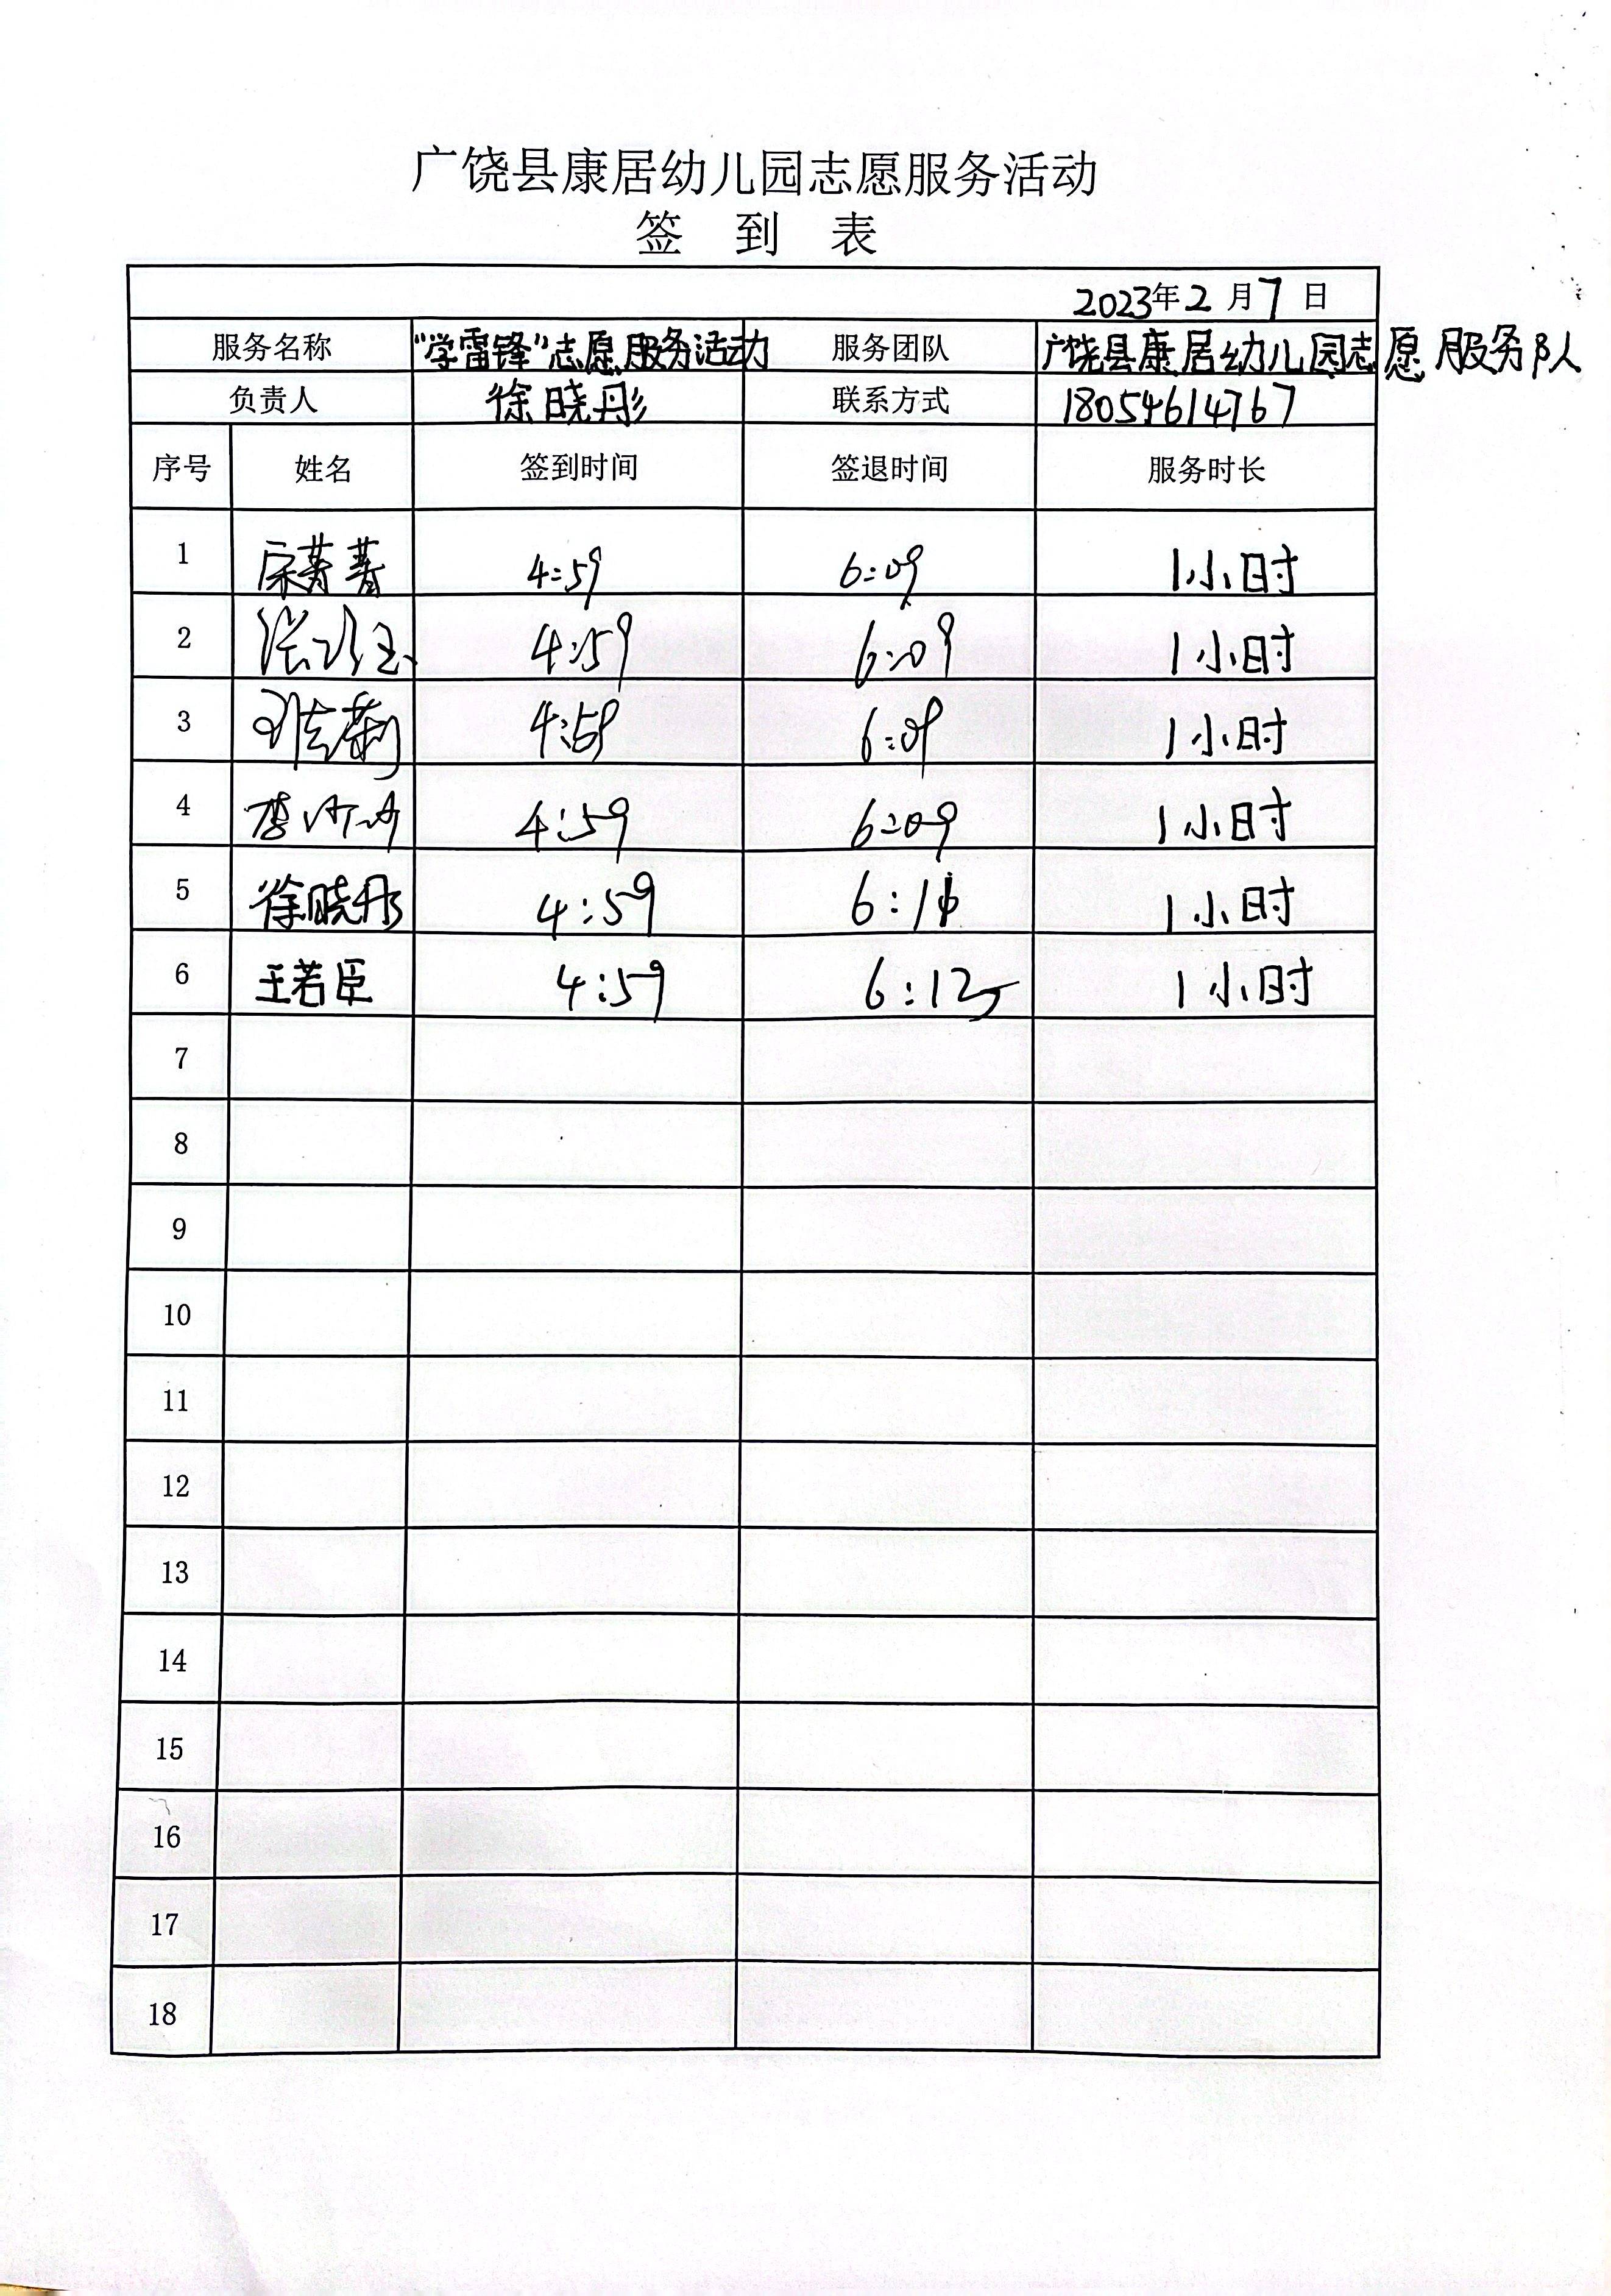 广饶县康居幼儿园志愿服务活动
签 到 表
2023年2月7日
服务名称 “学雷锋”志愿服务活动 服务团队 广饶县康居幼儿园志愿服务队
负责人 徐晓彤 联系方式 18054614767
序号 姓名 签到时间 签退时间 服务时长
1 宋菁菁 4:59 6:09 1小时
2 4:59 6:09 1小时
3 4:59 6:09 1小时
4 4:59 6:09 1小时
5 徐晓彤 4:59 1小时
6 王若臣 4:59 1小时
7
8
9
10
11
12
13
14
15
16
17
18